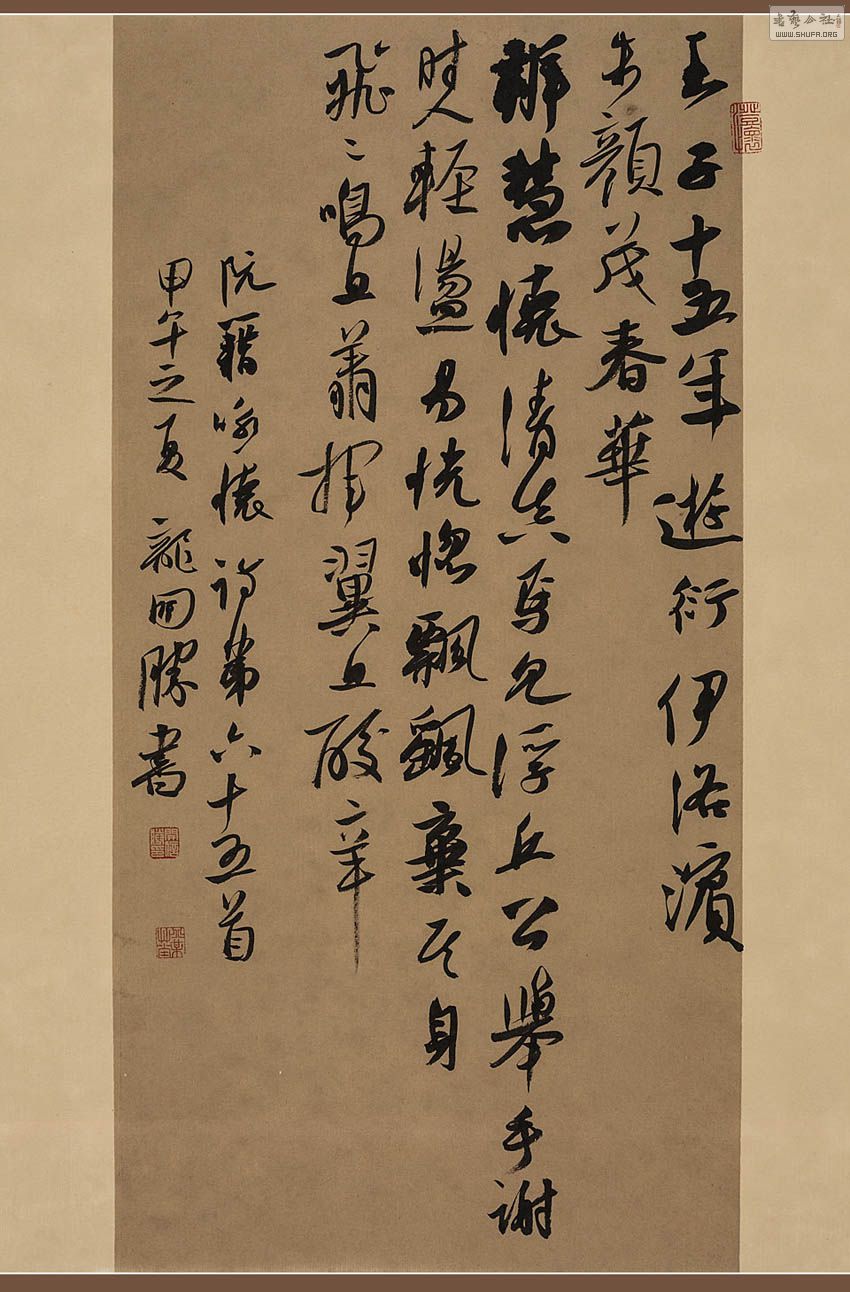 王子十五年遊衍伊洛濱
朱顔茂春華
辯慧懷清真焉見浮丘公舉手謝
時人輕盪易恍惚飄颻棄其身
飛飛鳴且翥揮翼且酸辛
阮籍咏懷诗第六十五首
甲午之夏 龍開勝書
書藝公社
WWW.SHUFA.ORG